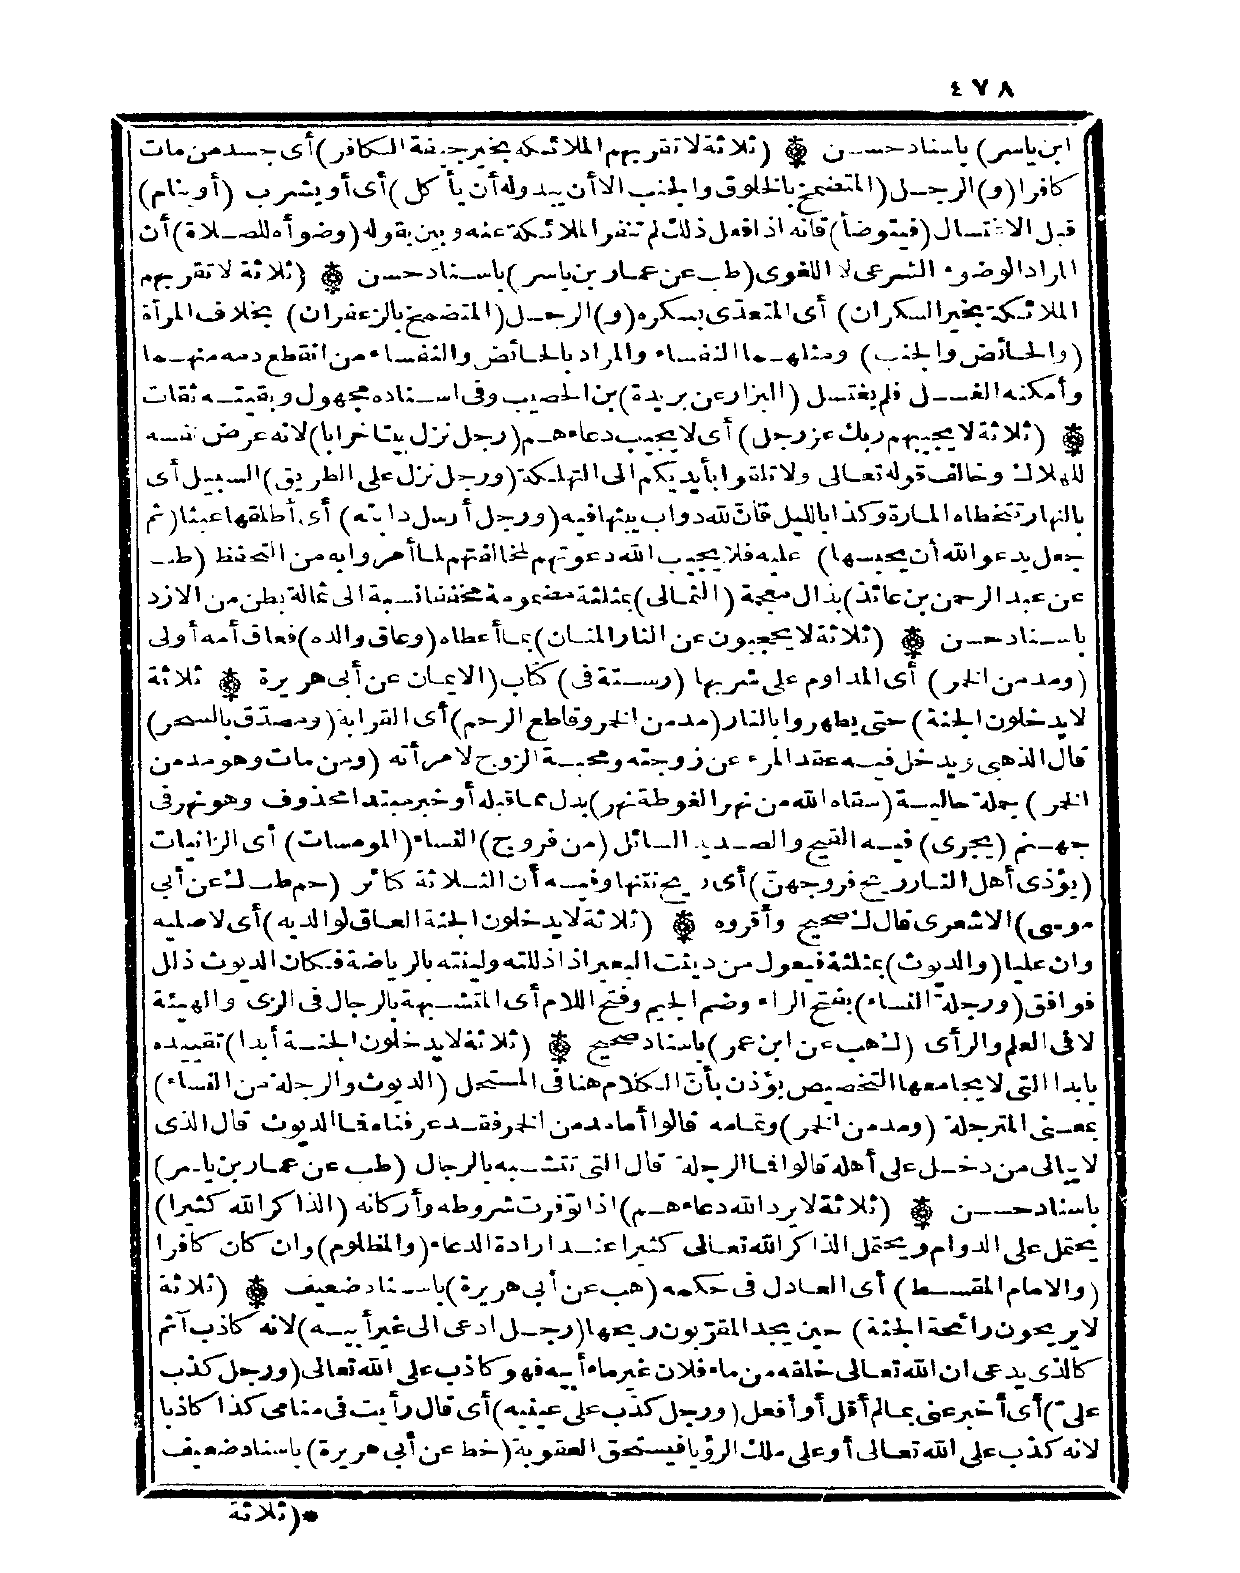 ٤٧٨
ابن ياسر) باسناد حسن ۞ (ثلاثة لا تقربهم الملائكة بخير جيفة الكافر) أى جسد من مات
كافرا (و) الرجل (المتضمخ بالخلوق والجنب الا أن يبدو له أن يأكل) أى أو يشرب (أو ينام)
قبل الاغتسال (فيتوضأ) فانه اذا فعل ذلك لم تنفر الملائكة عنه وبين بقوله (وضوأه للصلاة) أن
المراد الوضوء الشرعى لا اللغوى (طب عن عمار بن ياسر) باسناد حسن ۞ (ثلاثة لا تقربهم
الملائكة بخير السكران) أى المتعدى بسكره (و) الرجل (المتضمخ بالزعفران) بخلاف المرأة
(والحائض والجنب) ومثلهما النفساء والمراد بالحائض والنفساء من انقطع دمه منهما
وأمكنه الغسل فلم يغتسل (البزار عن بريدة) بن الحصيب وفى اسناده مجهول وبقيته ثقات
۞ (ثلاثة لا يجيبهم ربك عز وجل) أى لا يجيب دعاءهم (رجل نزل بيتا خرابا) لانه عرض نفسه
للهلاك وخالف قوله تعالى ولا تلقوا بأيديكم الى التهلكة (ورجل نزل على الطريق) السبيل أى
بالنهار تتخطاه المارة وكذا بالليل فانّ لله دواب يبثها فيه (ورجل أرسل دابته) أى أطلقها عبثا (ثم
جعل يدعو الله أن يحبسها) عليه فلا يجيب الله دعوتهم لمخالفتهم لما أمروا به من التحفظ (طب
عن عبد الرحمن بن عائذ) بذال معجمة (الثمالى) بمثلثة مضمومة مخففا نسبة الى ثمالة بطن من الازد
باسناد حسن ۞ (ثلاثة لا يحجبون عن النار المنان) بما أعطاه (وعاق والده) فعاق أمه أولى
(ومدمن الخمر) أى المداوم على شربها (رستة فى) كتاب (الايمان عن أبى هريرة ۞ ثلاثة
لا يدخلون الجنة) حتى يطهروا بالنار (مدمن الخمر وقاطع الرحم) أى القرابة (ومصدّق بالسحر)
قال الذهبى ويدخل فيه عقد المرء عن زوجته ومحبة الزوج لامرأته (ومن مات وهو مدمن
الخمر) جملة حالية (سقاه الله من نهر الغوطة نهر) بدل مما قبله أو خبر مبتدا محذوف وهو نهر فى
جهنم (يجرى) فيه القيح والصديد السائل (من فروج) النساء (المومسات) أى الزانيات
(يؤذى أهل النار ريح فروجهنّ) أى ريح نتنها وفيه أن الثلاثة كبائر (حم طب ك عن أبى
موسى) الاشعرى قال ك صحيح وأقروه ۞ (ثلاثة لا يدخلون الجنة العاق لوالديه) أى لاصليه
وان عليا (والديوث) بمثلثة فيعول من ديثت البعير اذا ذللته ولينته بالرياضة فكان الديوث ذلل
فوافق (ورجلة النساء) بفتح الراء وضم الجيم وفتح اللام أى المتشبهة بالرجال فى الزى والهيئة
لا فى العلم والرأى (ك هب عن ابن عمر) باسناد صحيح ۞ (ثلاثة لا يدخلون الجنة أبدا) تقييده
بابدا التى لا يجامعها التخصيص يؤذن بأنّ الكلام هنا فى المستحل (الديوث والرجلة من النساء)
بمعنى المترجلة (ومدمن الخمر) وتمامه قالوا أما مدمن الخمر فقد عرفناه فما الديوث قال الذى
لا يبالى من دخل على أهله قالوا فما الرجلة قال التى تتشبه بالرجال (طب عن عمار بن ياسر)
باسناد حسن ۞ (ثلاثة لا يرد الله دعاءهم) اذا توفرت شروطه وأركانه (الذاكر الله كثيرا)
يحتمل على الدوام ويحتمل الذاكر الله تعالى كثيرا عند ارادة الدعاء (والمظلوم) وان كان كافرا
(والامام المقسط) أى العادل فى حكمه (هب عن أبى هريرة) باسناد ضعيف ۞ (ثلاثة
لا يريحون رائحة الجنة) حين يجد المقرّبون ريحها (رجل ادعى الى غير أبيه) لانه كاذب آثم
كالذى يدعى ان الله تعالى خلقه من ماء فلان غير ماء أبيه فهو كاذب على الله تعالى (ورجل كذب
علىّ) أى أخبر عنى بما لم أقل أو أفعل (ورجل كذب على عينيه) أى قال رأيت فى منامى كذا كاذبا
لانه كذب على الله تعالى أو على ملك الرؤيا فيستحق العقوبة (خط عن أبى هريرة) باسناد ضعيف
*(ثلاثة